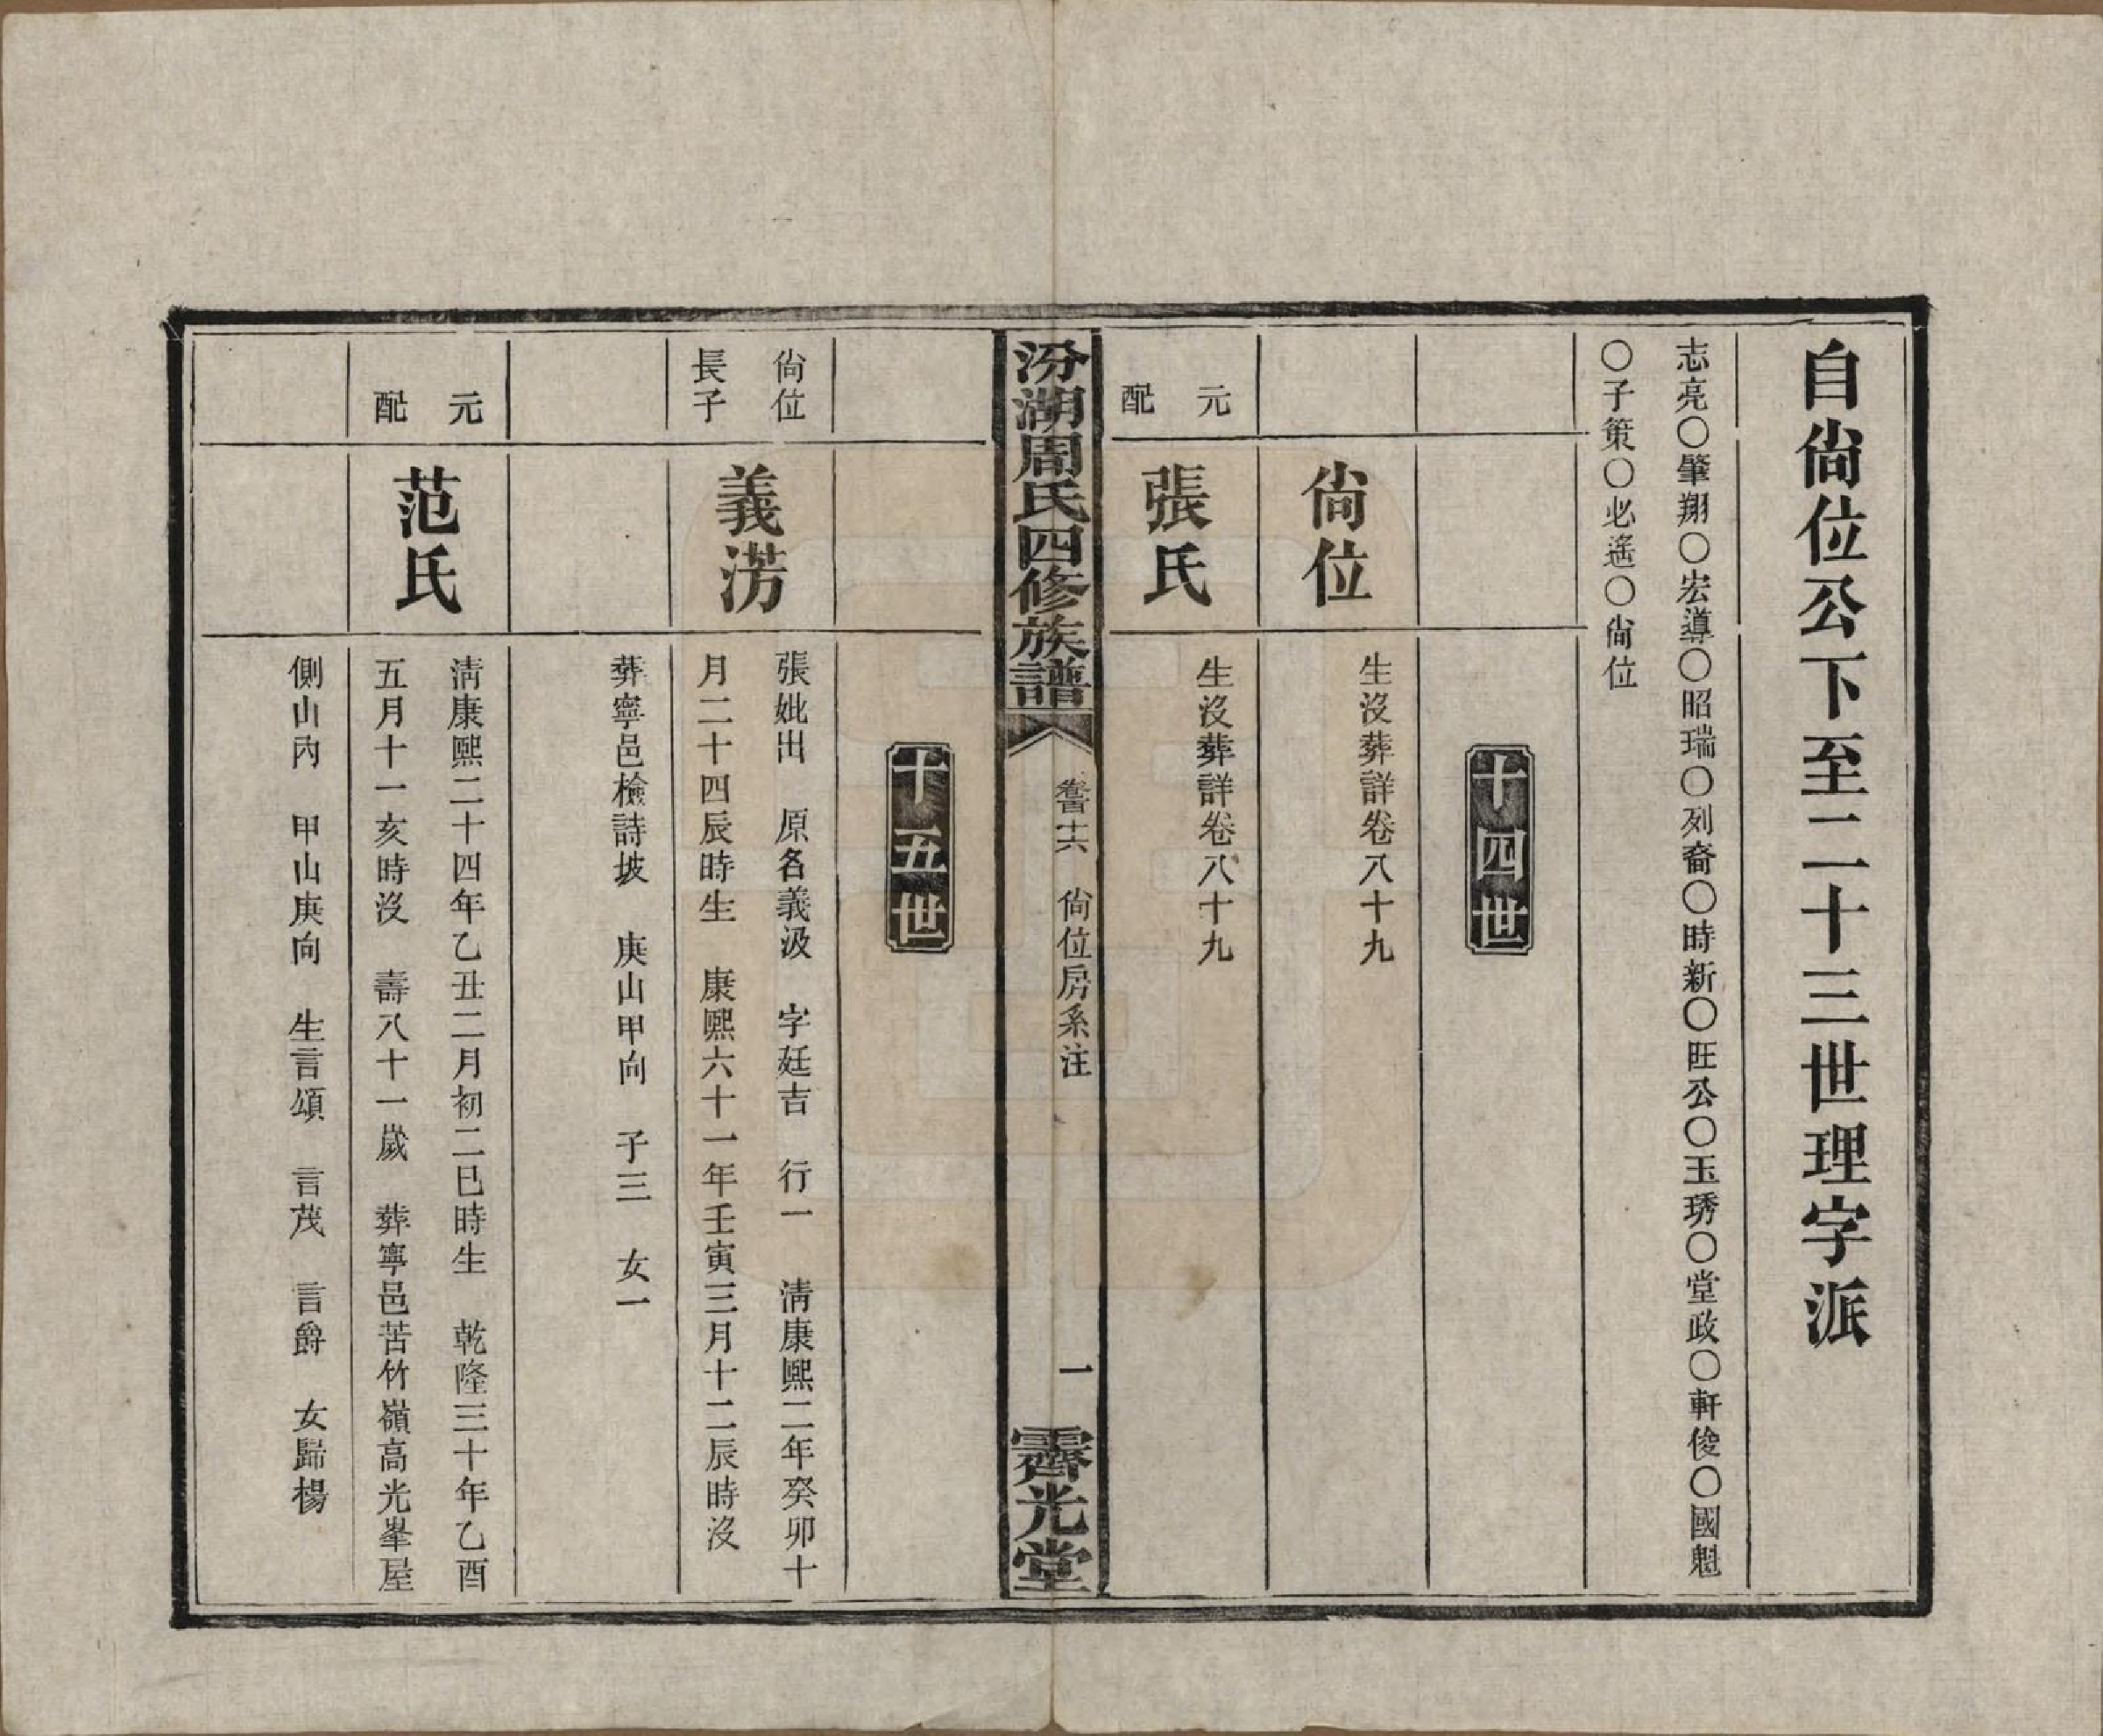 自尙位公下至二十三世理字派
志亮〇肇翔〇宏導〇昭瑞〇列裔〇時新〇旺公〇玉琇〇堂政〇軒俊〇國魁
〇子策〇必遙〇尙位
十四世
尙位
生沒葬詳卷八十九
元配
張氏
生沒葬詳卷八十九
汾湖周氏四修族譜
尙位房系注
一
霽光堂
十五世
尙位長子
義淓
張妣出 原名義汲 字廷吉 行一 淸康熙二年癸卯十
月二十四辰時生 康熙六十一年壬寅三月十二辰時沒
葬寧邑檢詩坡 庚山甲向 子三 女一
元配
范氏
淸康熙二十四年乙丑二月初二巳時生 乾隆三十年乙酉
五月十一亥時沒 壽八十一歲 葬寧邑苦竹嶺高光峯屋
側山內 甲山庚向 生言頌 言茂 言爵 女歸楊